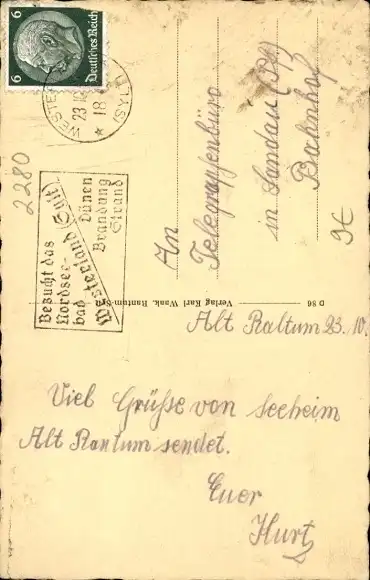 6 Deutsches Reich 6
WESTER
23.10
18
(SYLT)
2280
Besucht das
Nordsee-
bad
Westerland (Sylt)
Dünen
Brandung
Strand
An
Telegraphenbüro
in Landau (Pf)
Bahnhof
9€
D 86
Verlag Karl Wank, Rantum-Sylt
Alt Raltum 23. 10.
Viel Grüsse von Seeheim
Alt Rantum sendet.
Euer
Kurt